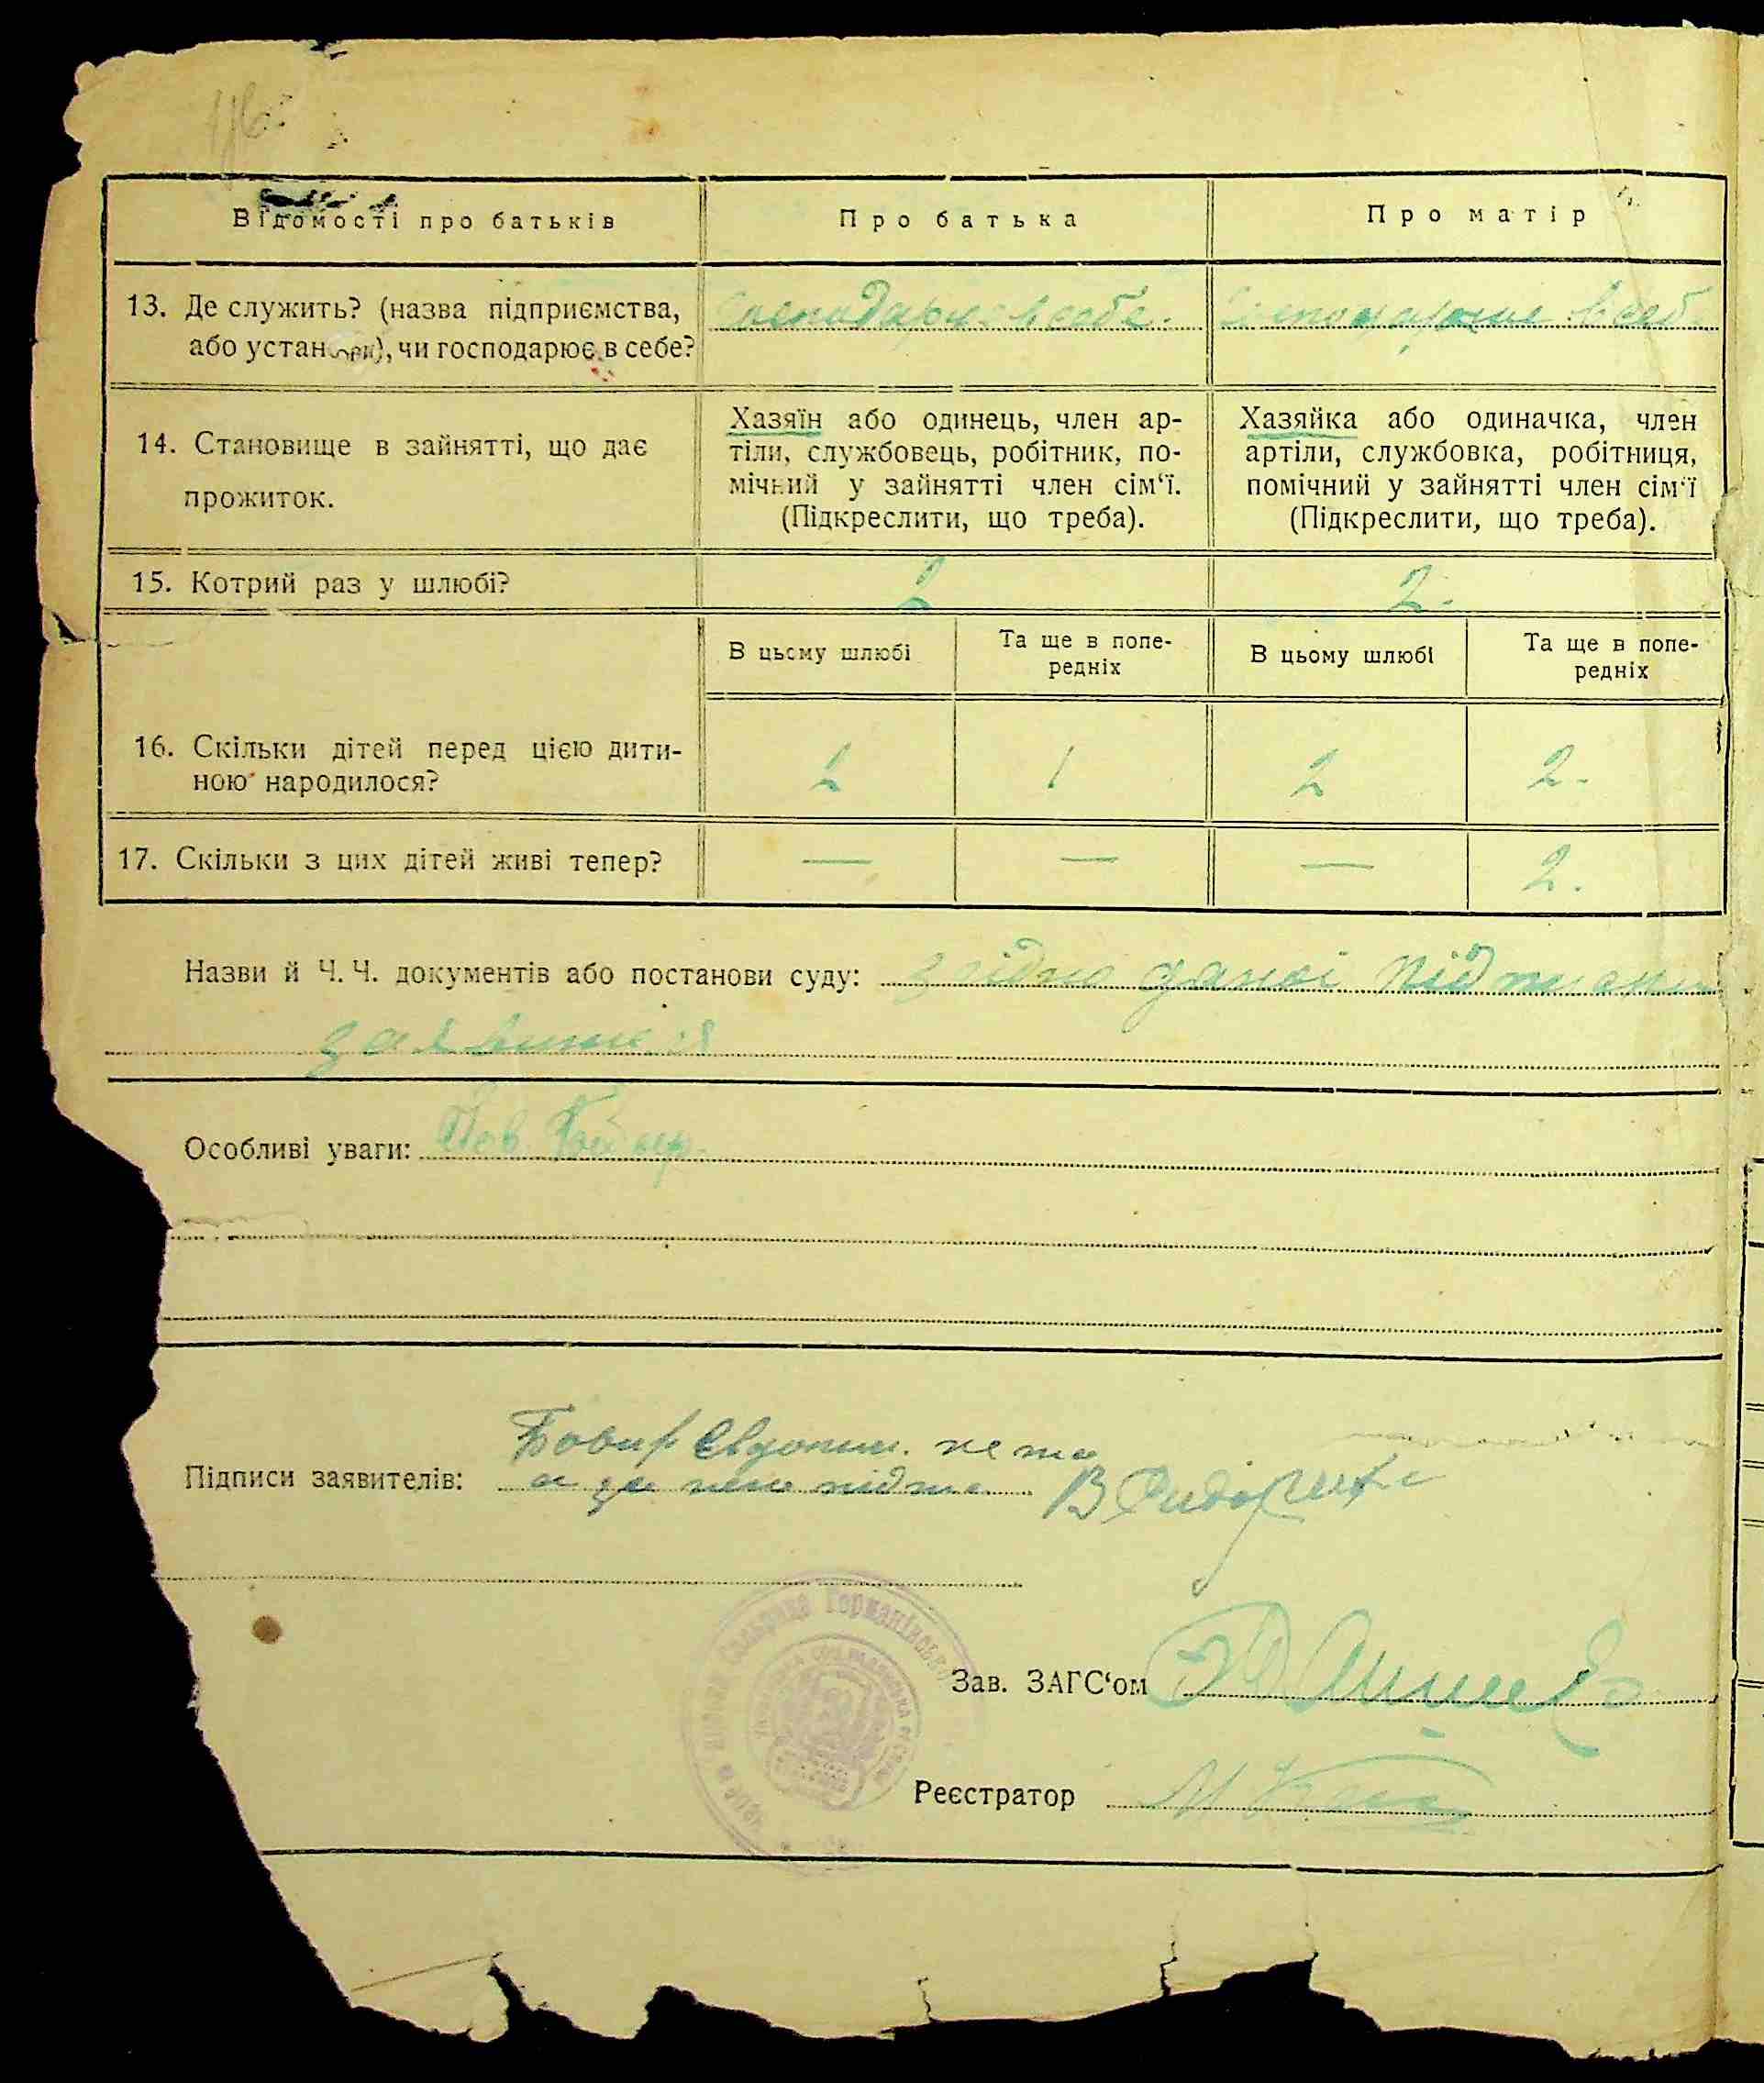 Відомості про батьків
Про батька
Про матір
13. Де служить? (назва підприємства,
або установи), чи господарює в себе?
господарює в себе.
господарює в себ
14. Становище в зайнятті, що дає
прожиток.
Хазяїн або одинець, член ар-
тіли, службовець, робітник, по-
мічний у зайнятті член сім‘ї.
(Підкреслити, що треба).
Хазяйка або одиначка, член
артіли, службовка, робітниця,
помічний у зайнятті член сім‘ї
(Підкреслити, що треба).
15. Котрий раз у шлюбі?
2
2.
В цьому шлюбі
Та ще в попе-
редніх
В цьому шлюбі
Та ще в попе-
редніх
16. Скільки дітей перед цією дити-
ною народилося?
2
1
2
2.
17. Скільки з цих дітей живі тепер?
—
—
—
2.
Назви й Ч. Ч. документів або постанови суду: згідно
Особливі уваги:
Підписи заявителів:
а за
Зав. ЗАГС‘ом
Реєстратор